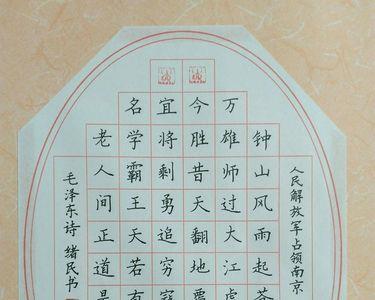 人民解放军占领南京
钟山风雨起苍
万雄师过大江虎
今胜昔天翻地覆
宜将剩勇追穷寇
名学霸王天若有
老人间正道是
毛泽东诗 绪民书